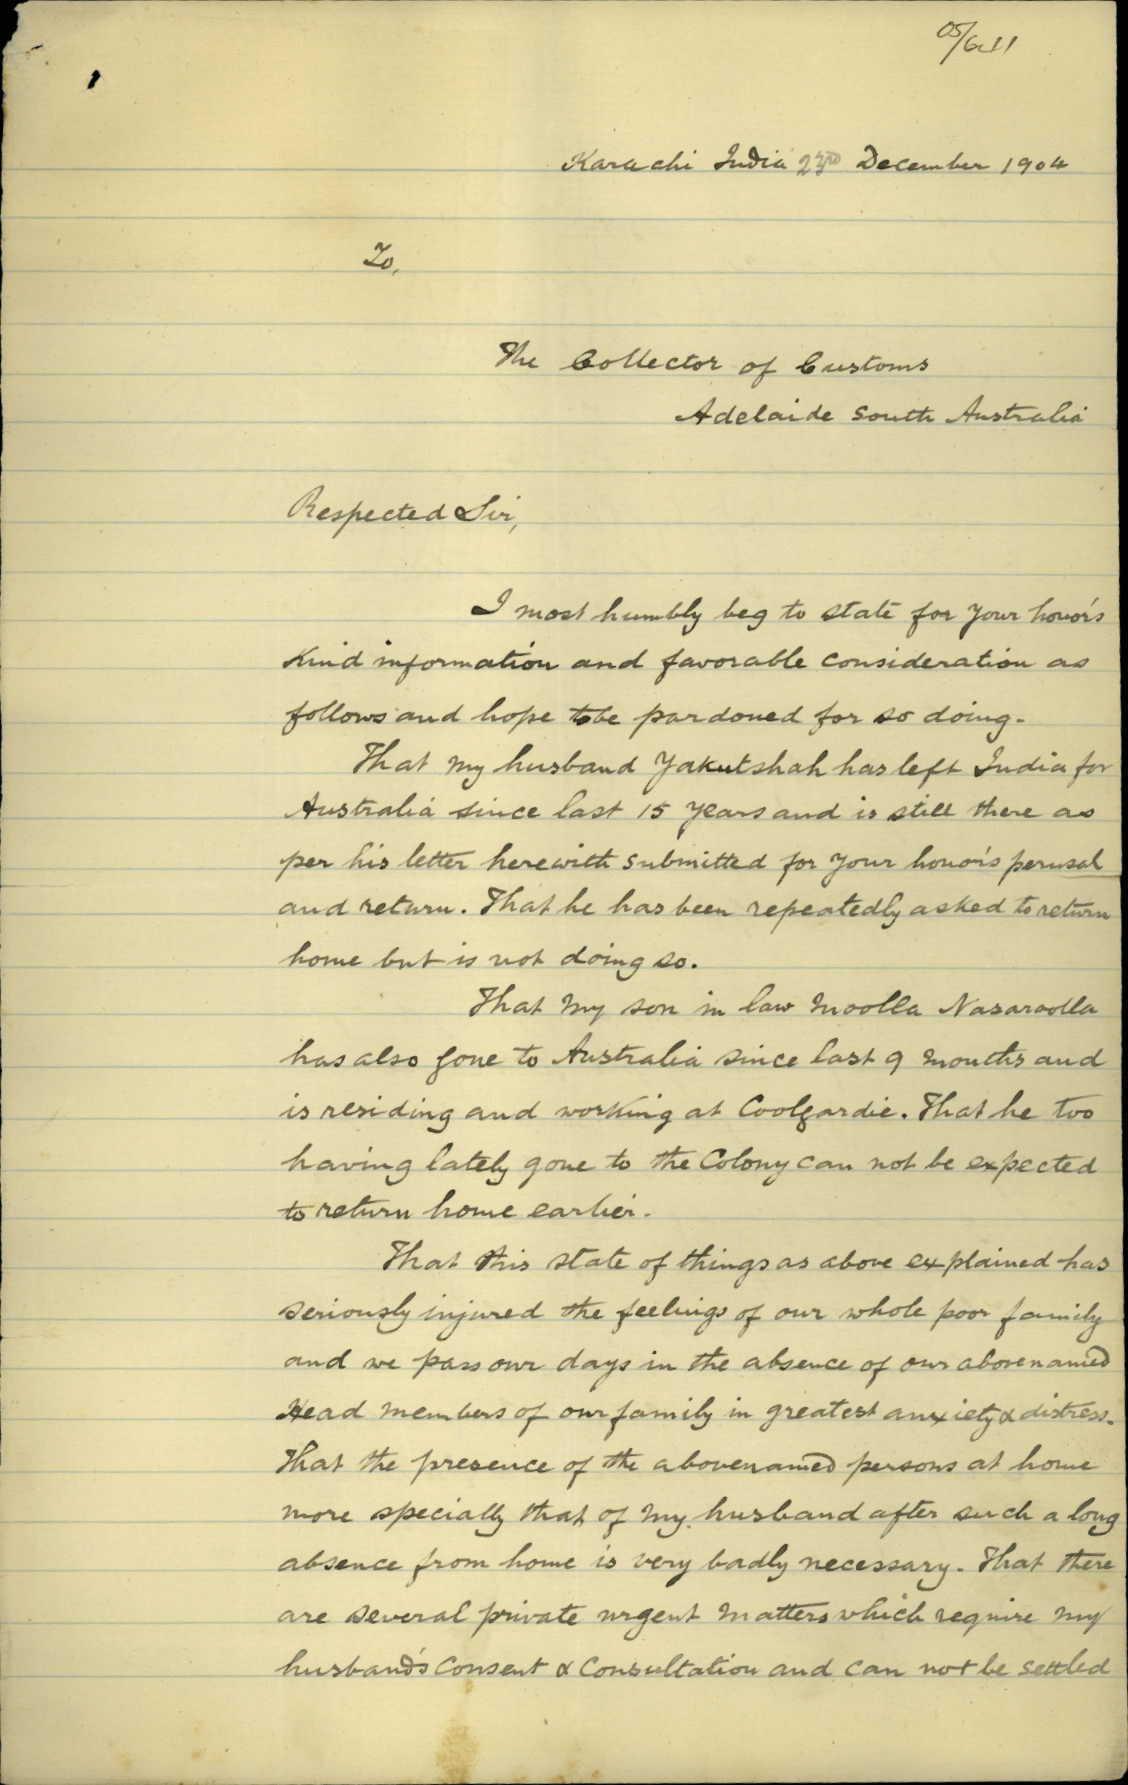 05/611
Karachi India 23rd December 1904
To,
The Collector of Customs
Adelaide South Australia
Respected Sir,
I most humbly beg to state for your honor's
kind information and favorable consideration as
follows and hope to be pardoned for so doing.
That my husband Yakutshah has left India for
Australia since last 15 years and is still there as
per his letter herewith submitted for your honor's perusal
and return. That he has been repeatedly asked to return
home but is not doing so.
That my son in law Moolla Nasaroolla
has also gone to Australia since last 9 months and
is residing and working at Coolgardie. That he too
having lately gone to the Colony can not be expected
to return home earlier.
That this state of things as above explained has
seriously injured the feelings of our whole poor family
and we pass our days in the absence of our abovenamed
Head members of our family in greatest anxiety & distress.
That the presence of the abovenamed persons at home
more specially that of my husband after such a long
absence from home is very badly necessary. That there
are several private urgent matters which require my
husband's consent & consultation and can not be settled